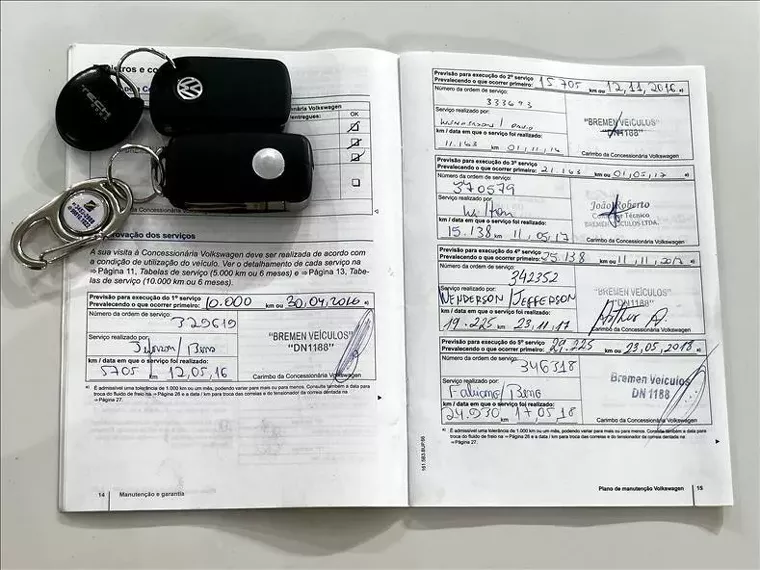 TECH
istros e co
onária Volkswagen
entregues:
OK
da Concessionária Volkswagen
provação dos serviços
A sua visita à Concessionária Volkswagen deve ser realizada de acordo
com a condição de utilização do veículo. Ver o detalhamento de cada serviço na
⇒ Página 11, Tabelas de serviço (5.000 km ou 6 meses) e ⇒ Página 13, Tabe-
las de serviço (10.000 km ou 6 meses).
Previsão para execução do 1º serviço
Prevalecendo o que ocorrer primeiro: 10.000 km ou 30.04.2016 a)
Número da ordem de serviço:
329619
Serviço realizado por:
km / data em que o serviço foi realizado:
5705 km 12.05.16
"BREMEN VEÍCULOS"
"DN1188"
Carimbo da Concessionária Volkswagen
a) É admissível uma tolerância de 1.000 km ou um mês, podendo variar para mais ou para menos. Consulte também a data para
troca do fluido de freio na ⇒ Página 26 e a data / km para troca das correias e do tensionador da correia dentada na
⇒ Página 27.
14 Manutenção e garantia
Previsão para execução do 2º serviço
Prevalecendo o que ocorrer primeiro: 15.705 km ou 12.11.2016 a)
Número da ordem de serviço:
333693
Serviço realizado por:
km / data em que o serviço foi realizado:
11.168 km 01.11.16
"BREMEN VEÍCULOS"
"DN1188"
Carimbo da Concessionária Volkswagen
Previsão para execução do 3º serviço
Prevalecendo o que ocorrer primeiro: 21.168 km ou 01.05.17 a)
Número da ordem de serviço:
340579
Serviço realizado por:
Wilton
km / data em que o serviço foi realizado:
15.138 km 11.05.17
João Roberto
Técnico
BREMEN VEÍCULOS LTDA.
Carimbo da Concessionária Volkswagen
Previsão para execução do 4º serviço
Prevalecendo o que ocorrer primeiro: 25.138 km ou 11.11.2017 a)
Número da ordem de serviço:
342352
Serviço realizado por:
WENDERSON / JEFFERSON
km / data em que o serviço foi realizado:
19.225 km 23.11.17
"BREMEN VEÍCULOS"
"DN1188"
Carimbo da Concessionária Volkswagen
Previsão para execução do 5º serviço
Prevalecendo o que ocorrer primeiro: 29.225 km ou 23.05.2018 a)
Número da ordem de serviço:
346318
Serviço realizado por:
Fabiano /
km / data em que o serviço foi realizado:
24.030 km 17.05.18
Bremen Veículos
DN 1188
Carimbo da Concessionária Volkswagen
a) É admissível uma tolerância de 1.000 km ou um mês, podendo variar para mais ou para menos. Consulte também a data para
troca do fluido de freio na ⇒ Página 26 e a data / km para troca das correias e do tensionador da correia dentada na
⇒ Página 27.
Plano de manutenção Volkswagen 15